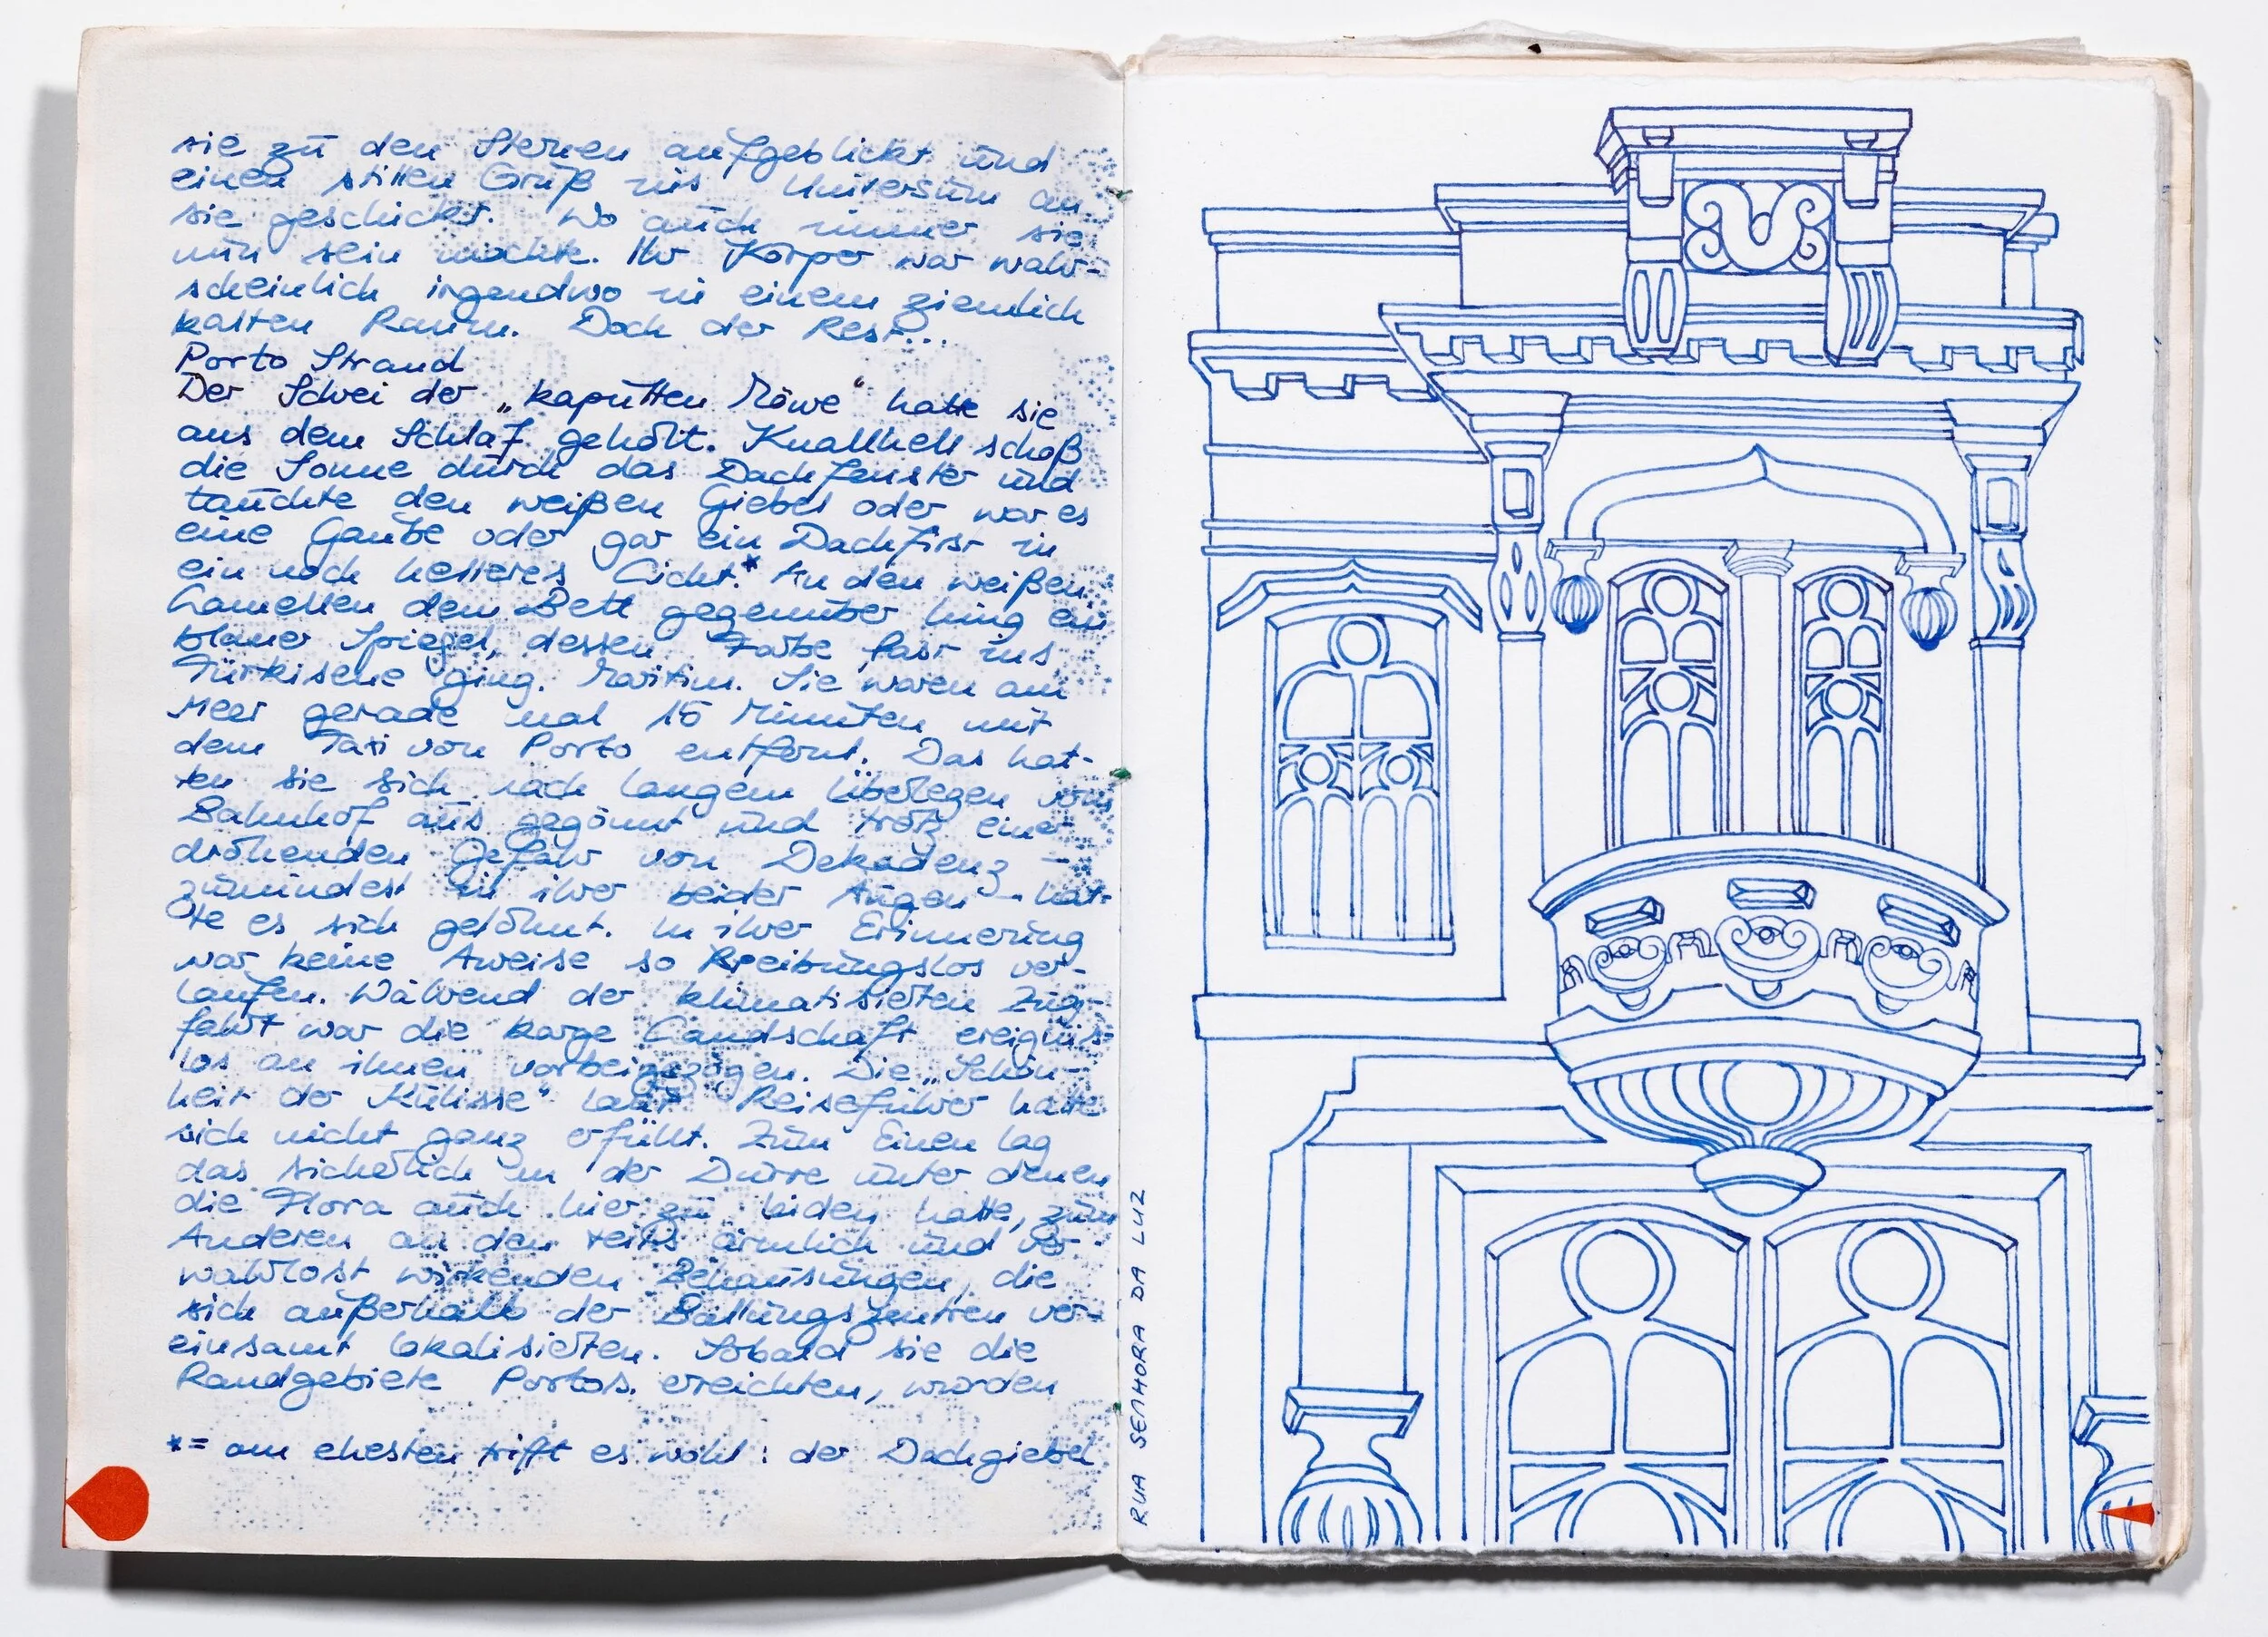 sie zu den Sternen aufgeblickt und
einen stillen Gruß ins Universum an
sie geschickt. Wo auch immer sie
nun sein mochte. Ihr Körper war wahr-
scheinlich irgendwo in einem ziemlich
kalten Raum. Doch der Rest...
Porto Strand
Der Schrei der „kaputten Möwe“ hatte sie
aus dem Schlaf geholt. Knallhell schoß
die Sonne durch das Dachfenster und
tauchte den weißen Giebel oder war es
eine Gaube oder gar ein Dachfirst in
ein noch helleres Licht.* An den weißen
Lamellen dem Bett gegenüber hing ein
blauer Spiegel, dessen Farbe fast ins
Türkisene ging. Maritim. Sie waren am
Meer gerade mal 15 Minuten mit
dem Taxi von Porto entfernt. Das hat-
ten sie sich nach langem Überlegen vom
Bahnhof aus gegönnt und trotz einer
drohenden Gefahr von Dekadenz –
zumindest in ihrer beider Augen – hat-
te es sich gelohnt. In ihrer Erinnerung
war keine Aweise so Rreibungslos ver-
laufen. Während der klimatisierten Zug-
fahrt war die karge Landschaft ereignis-
los an ihnen vorbeigezogen. Die „Schön-
heit der Kulisse“ laut Reiseführer hatte
sich nicht ganz erfüllt. Zum Einen lag
das sicherlich an der Dürre unter denen
die Flora auch hier zu leiden hatte, zum
Anderen an den teils ärmlich und ver-
wahrlost wirkenden Behausungen, die
sich außerhalb der Ballungszentren ver-
einsamt lokalisierten. Sobald sie die
Randgebiete Portos erreichten, wurden
*= am ehesten trifft es wohl: der Dachgiebel
RUA SENHORA DA LUZ